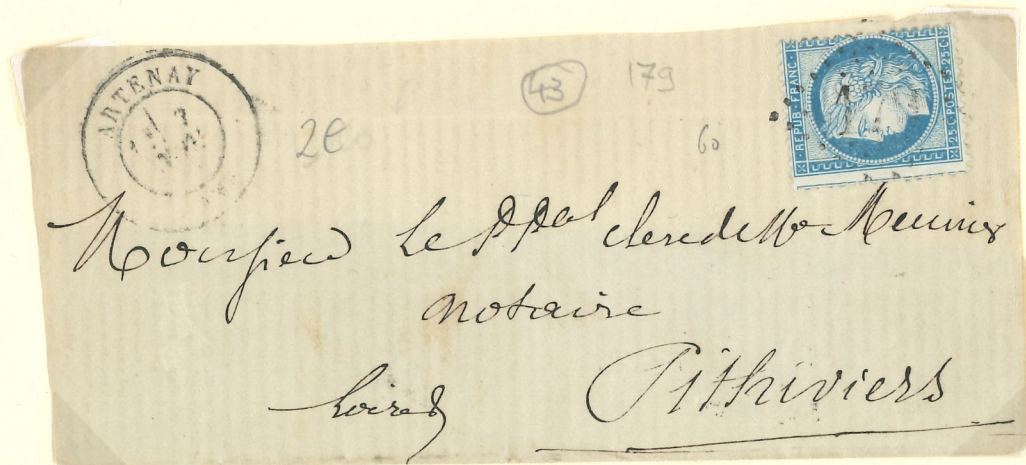 ARTENAY
2e
43
179
60
REPUB · FRANC ·
25 C POSTES 25 C
Monsieur Le Ppal clerc de Me Meunier
notaire
Pithiviers
Loiret